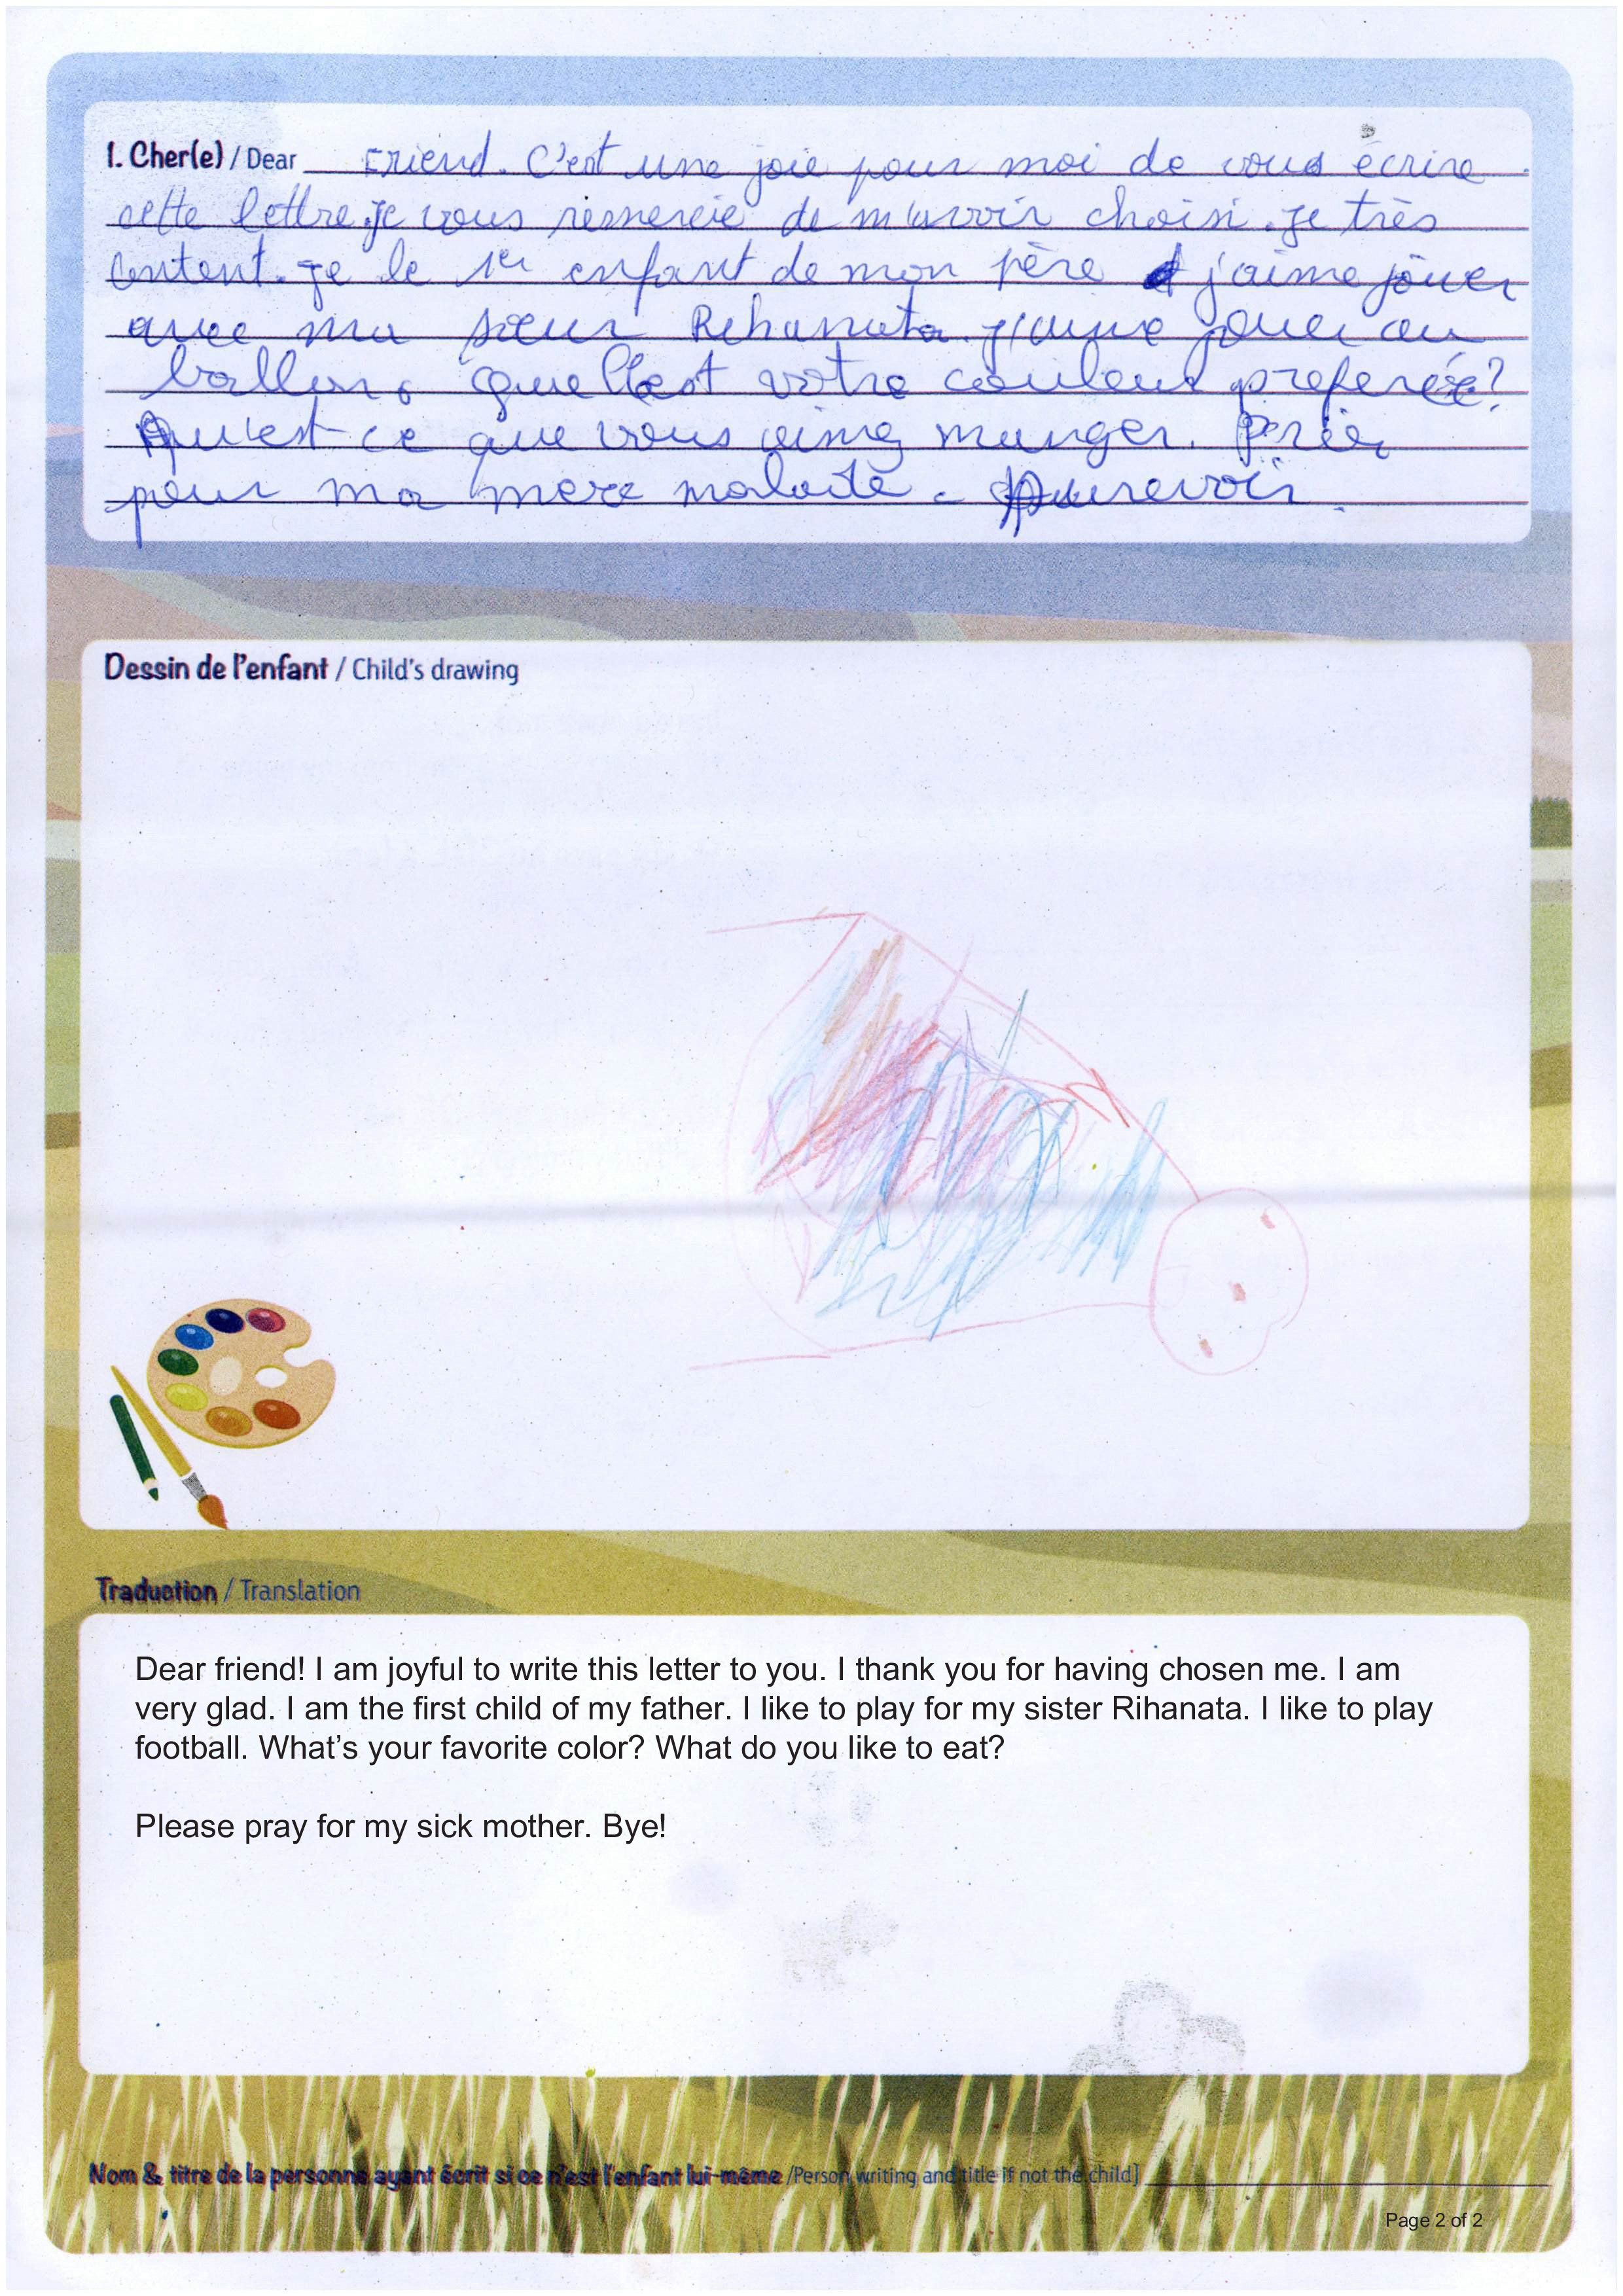 1. Cher(e) / Dear Friend. C'est une joie pour moi de vous écrire
cette lettre. je vous remercie de m'avoir choisi. je très
content. je le 1er enfant de mon père et j'aime jouer
avec ma sœur Rihanata. j'aime jouer au
ballon. quelle est votre couleur preferée?
Qu'est ce que vous aimez manger. Priez
pour ma mere malade. Aurevoir.
Dessin de l'enfant / Child's drawing
Traduction / Translation
Dear friend! I am joyful to write this letter to you. I thank you for having chosen me. I am
very glad. I am the first child of my father. I like to play for my sister Rihanata. I like to play
football. What's your favorite color? What do you like to eat?
Please pray for my sick mother. Bye!
Nom & titre de la personne ayant écrit si ce n'est l'enfant lui-même /Person writing and title if not the child]
Page 2 of 2